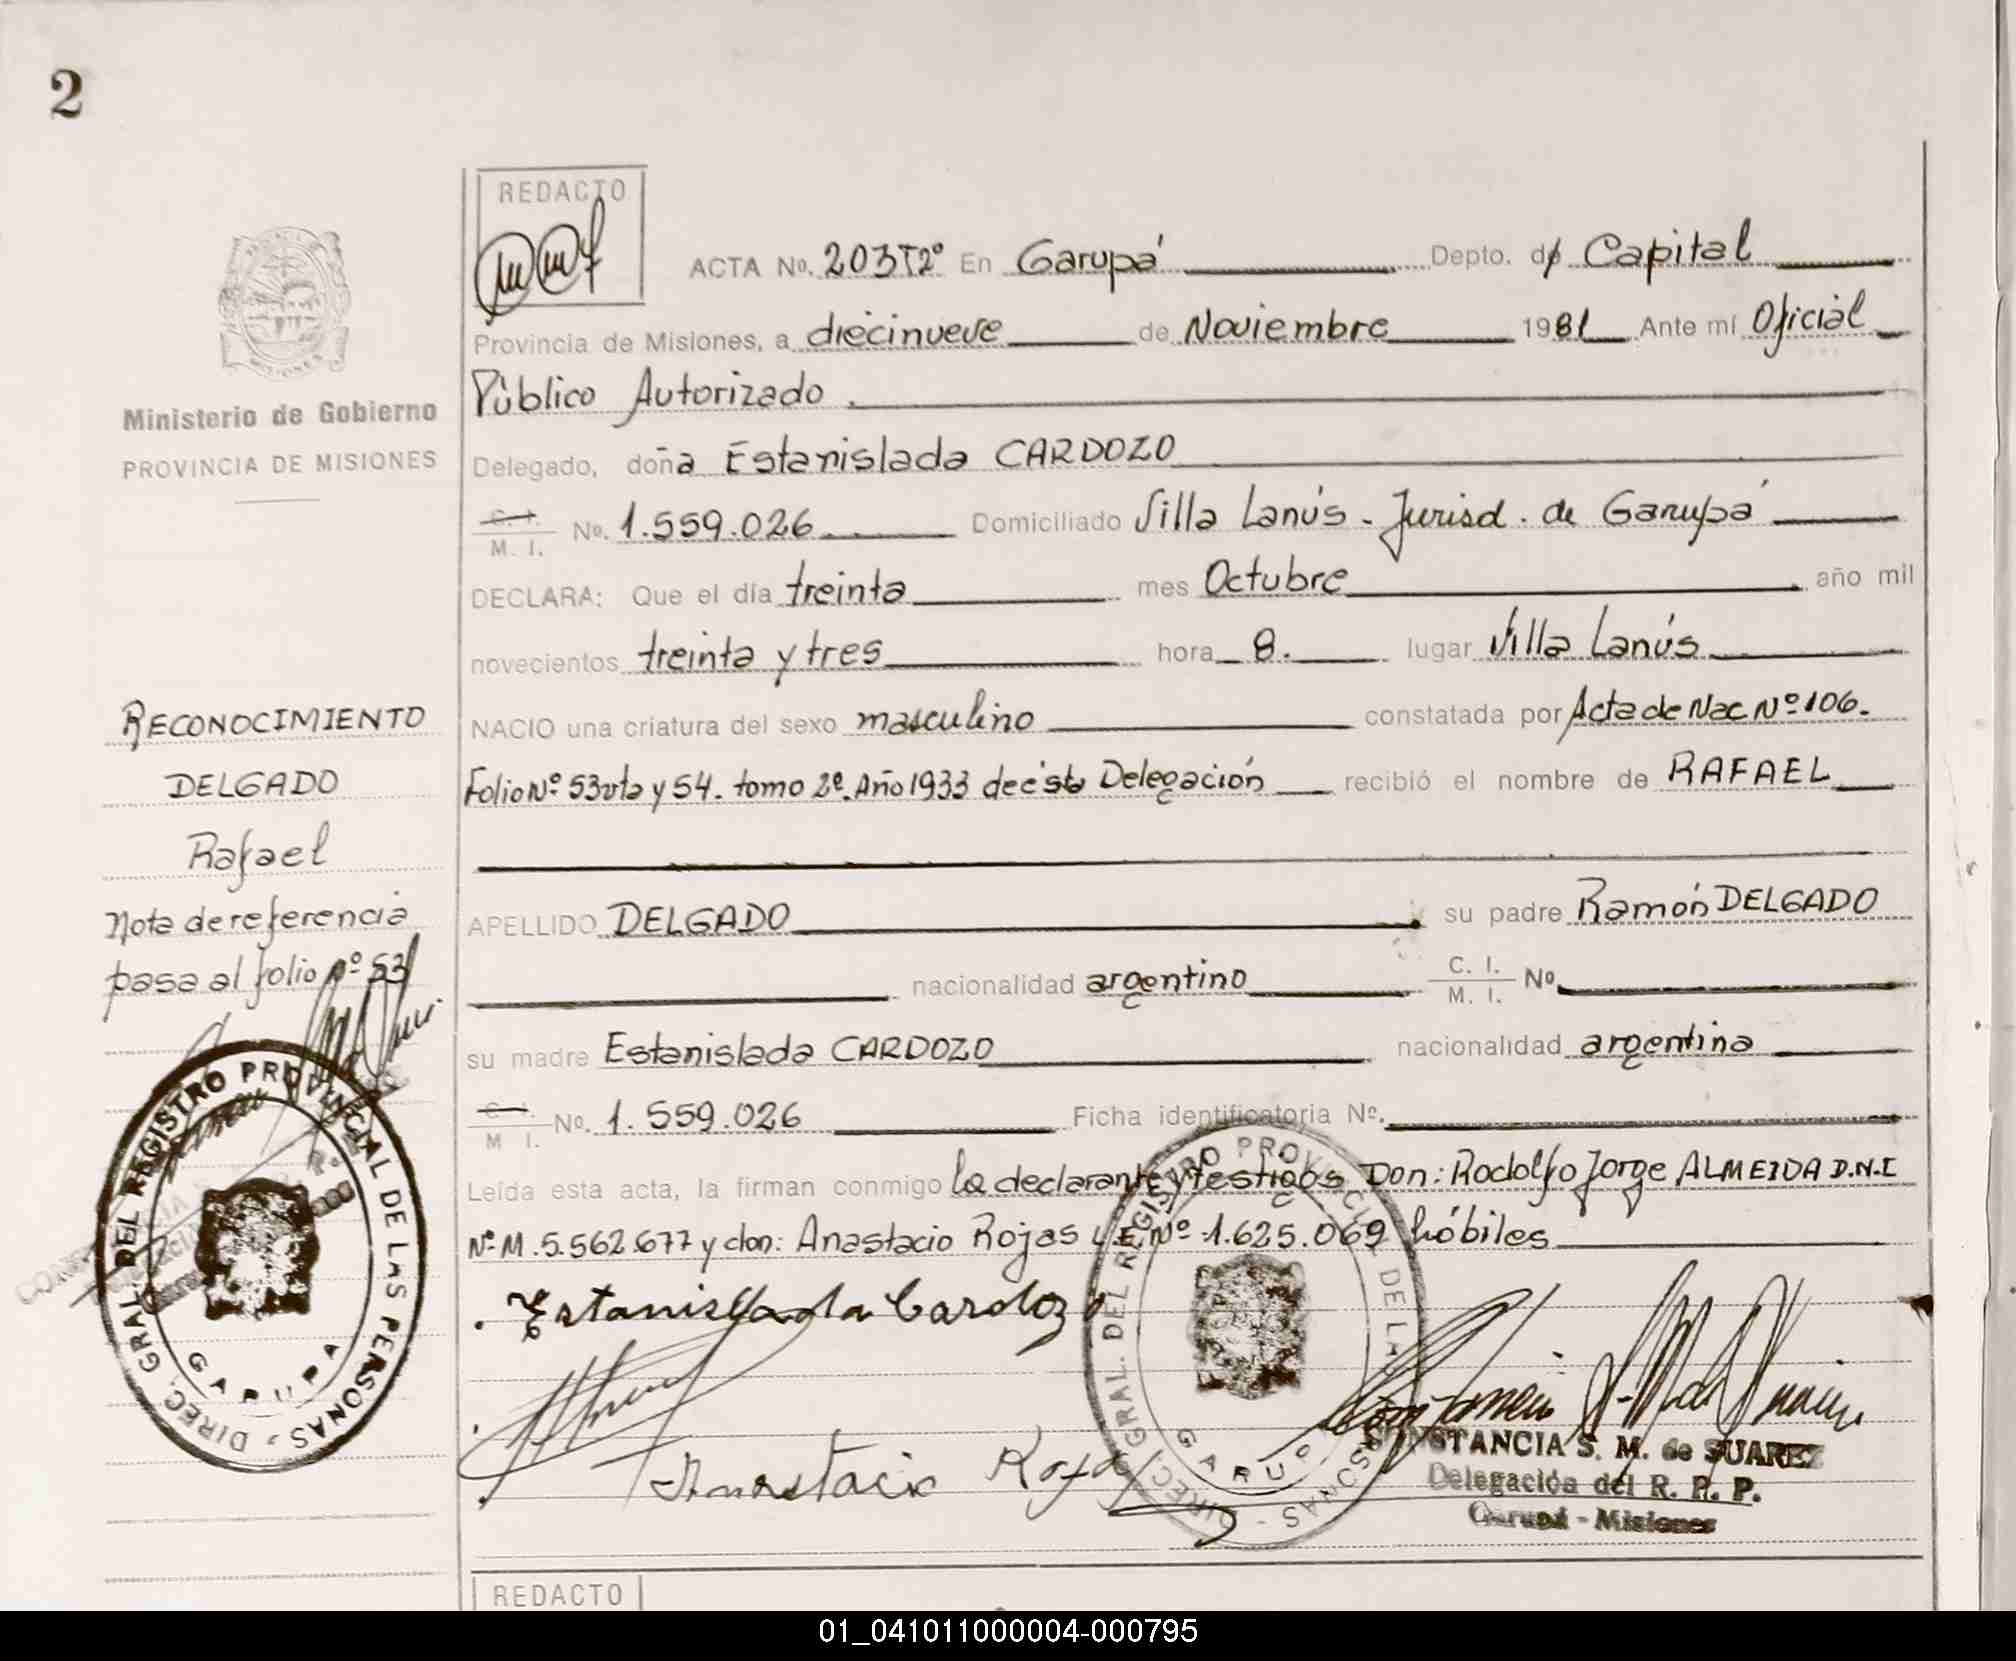 2
REDACTO
ACTA No. 203 T2º En Garupá Depto. d/ Capital
Provincia de Misiones, a diecinueve de Noviembre 1981 Ante mí Oficial
Público Autorizado.
Ministerio de Gobierno
PROVINCIA DE MISIONES
Delegado, doña Estanislada CARDOZO
C. I.
M. I. No. 1.559.026 Domiciliado Villa Lanús - Jurisd. de Garupá
DECLARA: Que el día treinta mes Octubre año mil
novecientos treinta y tres hora 8. lugar Villa Lanús
NACIO una criatura del sexo masculino constatada por Acta de Nac Nº 106.
Folio Nº 53 vta y 54. tomo 2º. Año 1933 de ésta Delegación recibió el nombre de RAFAEL
RECONOCIMIENTO
DELGADO
Rafael
Nota de referencia
pasa al folio nº 53
APELLIDO DELGADO su padre Ramón DELGADO
nacionalidad argentino C. I.
M. I. No
su madre Estanislada CARDOZO nacionalidad argentina
C. I.
M I. No. 1.559.026 Ficha identificatoria No.
Leída esta acta, la firman conmigo la declarante y testigos Don: Rodolfo Jorge ALMEIDA D.N.I
Nº M. 5.562.677 y don: Anastacio Rojas L.E. Nº 1.625.069 hábiles
Estanislada Cardozo
Anastacio Rojas
DIREC. GRAL. DEL REGISTRO PROVINCIAL DE LAS PERSONAS -
GARUPA
DIREC. GRAL. DEL REGISTRO PROVINCIAL DE LAS PERSONAS -
GARUPA
CONSTANCIA S. M. de SUAREZ
Delegación del R. P. P.
Garupá - Misiones
REDACTO
01_041011000004-000795